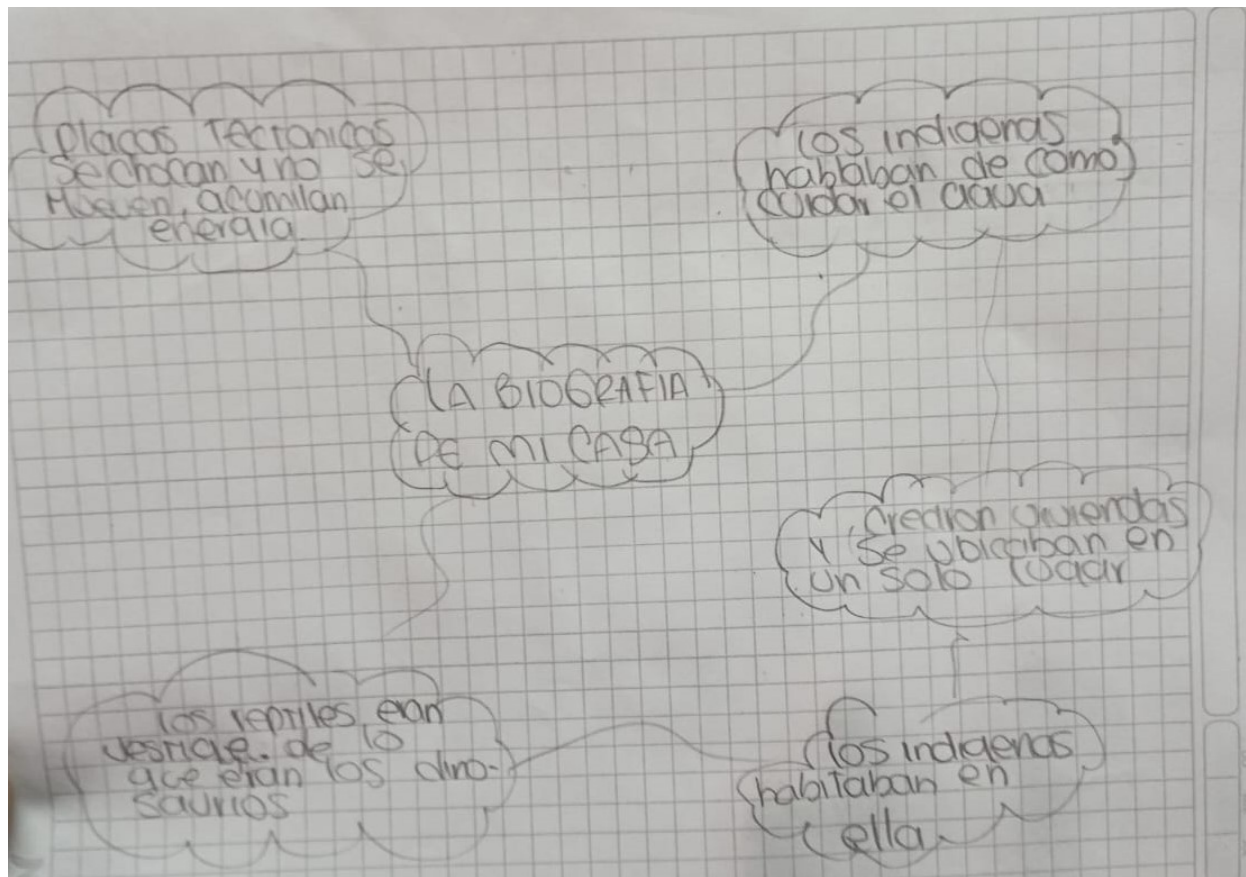 Placas Tectonicas
se chocan y no se
Mueven, acumilan
energia
los indigenas
hablaban de como
cuidar el agua
LA BIOGRAFIA
DE MI CASA
Crearon viviendas
y se ubicaban en
un solo lugar
los reptiles eran
de lo
que eran los dino-
saurios
los indigenas
habitaban en
ella